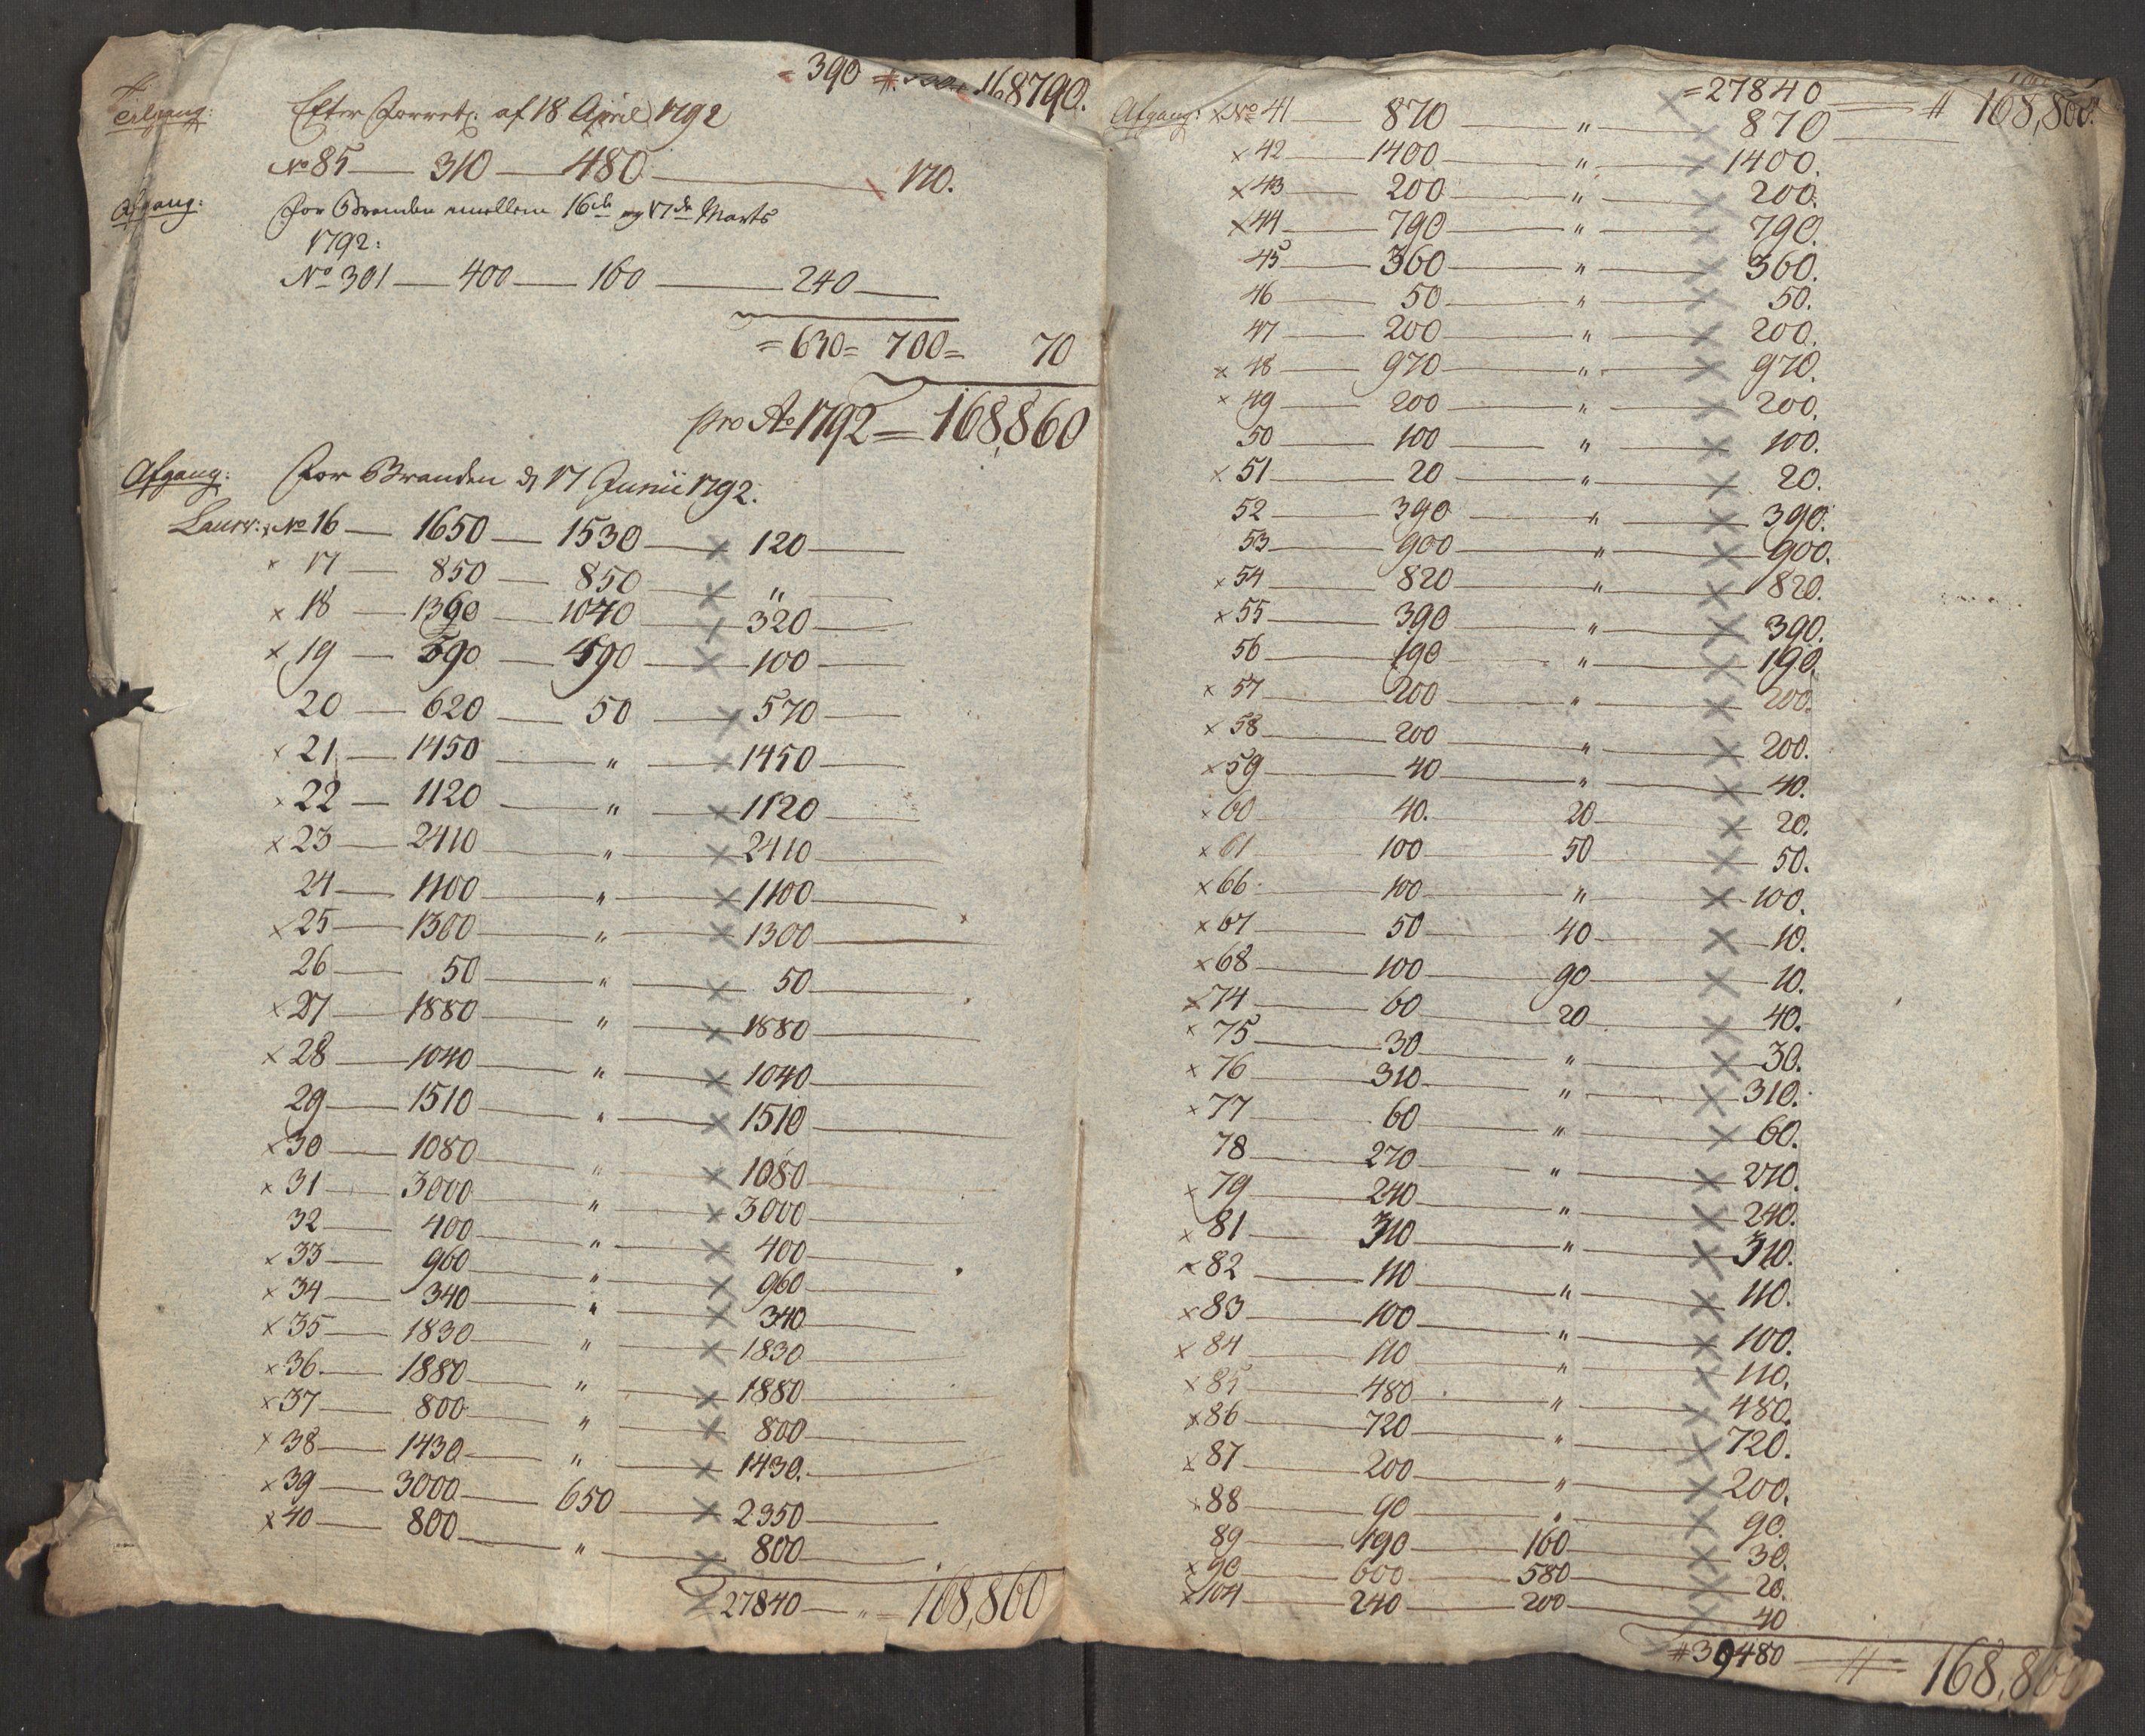 = 390 # 168790.
Tilgang: Efter Forretn: af 18 April 1792
No 85 — 310 — 480 — 170.
Afgang: For Branden mellem 16de og 17de Marts
1792:
No 301 — 400 — 160 — 240 —
= 630 = 700 = 70
pro Ao 1792 = 168,860
Afgang: For Branden d 17 Junii 1792.
Laurv: x No 16 — 1650 — 1530 — x 120 —
x 17 — 850 — 850 — x " —
x 18 — 1360 — 1040 — x 320 —
x 19 — 590 — 490 — x 100 —
20 — 620 — 50 — x 570 —
x 21 — 1450 — " — x 1450 —
x 22 — 1120 — " — x 1120 —
x 23 — 2410 — " — x 2410 —
24 — 1100 — " — x 1100 —
x 25 — 1300 — " — x 1300 —
26 — 50 — " — x 50 —
x 27 — 1880 — " — x 1880 —
x 28 — 1040 — " — x 1040 —
29 — 1510 — " — x 1510 —
x 30 — 1080 — " — x 1080 —
x 31 — 3000 — " — x 3000 —
32 — 400 — " — x 400 —
x 33 — 960 — " — x 960 —
x 34 — 340 — " — x 340 —
x 35 — 1830 — " — x 1830 —
x 36. — 1880 — " — x 1880 —
x 37 — 800 — " — x 800 —
x 38 — 1430 — " — x 1430. —
x 39 — 3000 — 650 — x 2350 —
x 40 — 800 — " — x 800 —
x 27840 — " = 168,860
= 27840 — # 168,860.
Afgang: x No 41 — 870 — " — x 870 —
x 42 — 1400 — " — x 1400.
x 43 — 200 — " — x 200.
x 44 — 790 — " — x 790.
45 — 360 — " — x 360.
46 — 50 — " — x 50.
47 — 200 — " — x 200.
x 48 — 970 — " — x 970.
x 49 — 200 — " — x 200.
50 — 100 — " — x 100.
x 51 — 20 — " — x 20.
52 — 390 — " — x 390.
53 — 900 — " — x 900.
x 54 — 820 — " — x 820.
x 55 — 390 — " — x 390.
56 — 190 — " — x 190.
x 57 — 200 — " — x 200.
x 58 — 200 — " — x 200.
x 59 — 40 — " — x 40.
x 60 — 40. — 20 — x 20.
x 61 — 100 — 50 — x 50.
x 66 — 100 — " — x 100.
x 67 — 50 — 40 — x 10.
x 68 — 100 — 90 — x 10.
x 74 — 60 — 20 — x 40.
x 75 — 30 — " — x 30.
x 76 — 310 — " — x 310.
x 77 — 60 — " — x 60.
78 — 270 — " — x 270.
x 79 — 240 — " — x 240.
x 81 — 310 — " — x 310.
x 82 — 110 — " — x 110.
x 83 — 100 — " — x 100.
x 84 — 110 — " — x 110.
x 85 — 480 — " — x 480.
x 86 — 720 — " — x 720.
x 87 — 200 — " — x 200.
x 88 — 90 — " — x 90.
89 — 190 — 160 — x 30.
x 90 — 600 — 580 — x 20.
x 104 — 240 — 200 — x 40
# 39480 — # — 168,860